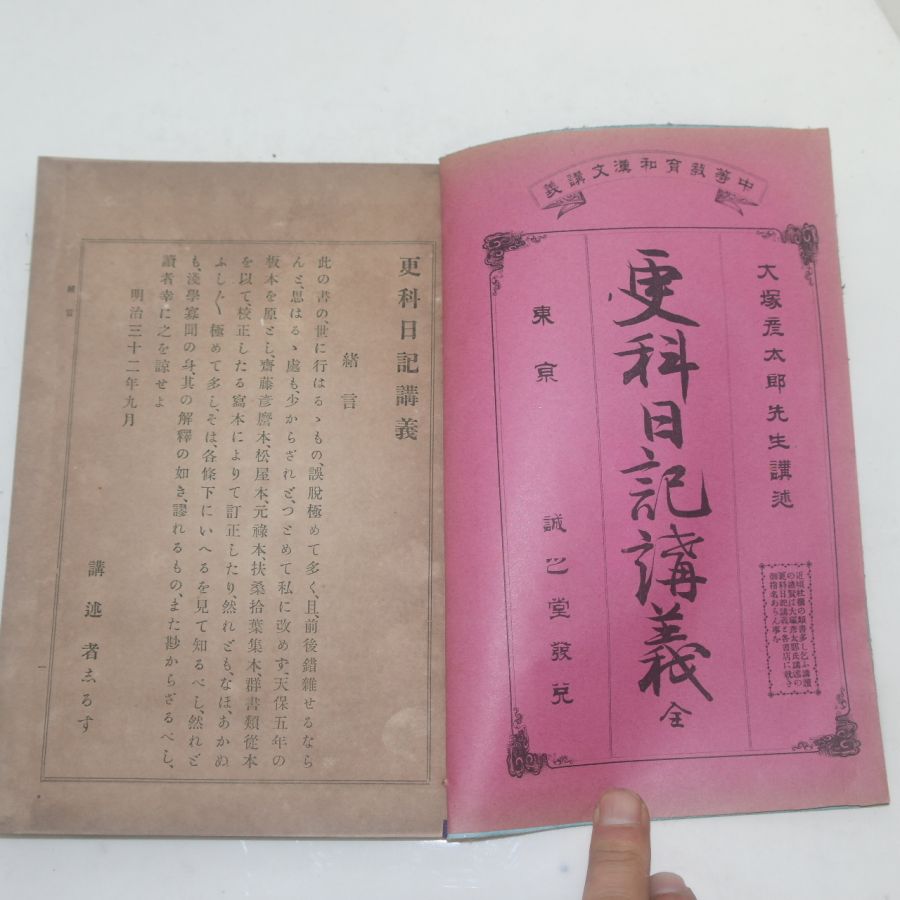 中等敎育和漢文講義
大塚彦太郎先生講述
近頃杜撰の類書多し乞ふ購讀
の諸賢は大塚彦太郎氏講述の
更科日記講義と各書店に就き
御指名あらん事を
更科日記講義 全
東京 誠之堂發兌
更科日記講義
緖言
此の書の、世に行はるゝもの、誤脫極めて多く、且、前後錯雜せるなら
んと、思はるゝ處も、少からざれど、つとめて私に改めず、天保五年の
板本を原とし、齋藤彦麿本、松屋本、元祿本、扶桑拾葉集本、群書類從本
を以て、校正したる寫本によりて訂正したり、然れども、なほあかぬ
ふし〲極めて多し、そは、各條下にいへるを見て知るべし、然れど
も、淺學寡聞の身、其の解釋の如き、謬れるもの、また尠からざるべし、
讀者幸に之を諒せよ
明治三十二年九月
講述者ゑるす
緖言
一